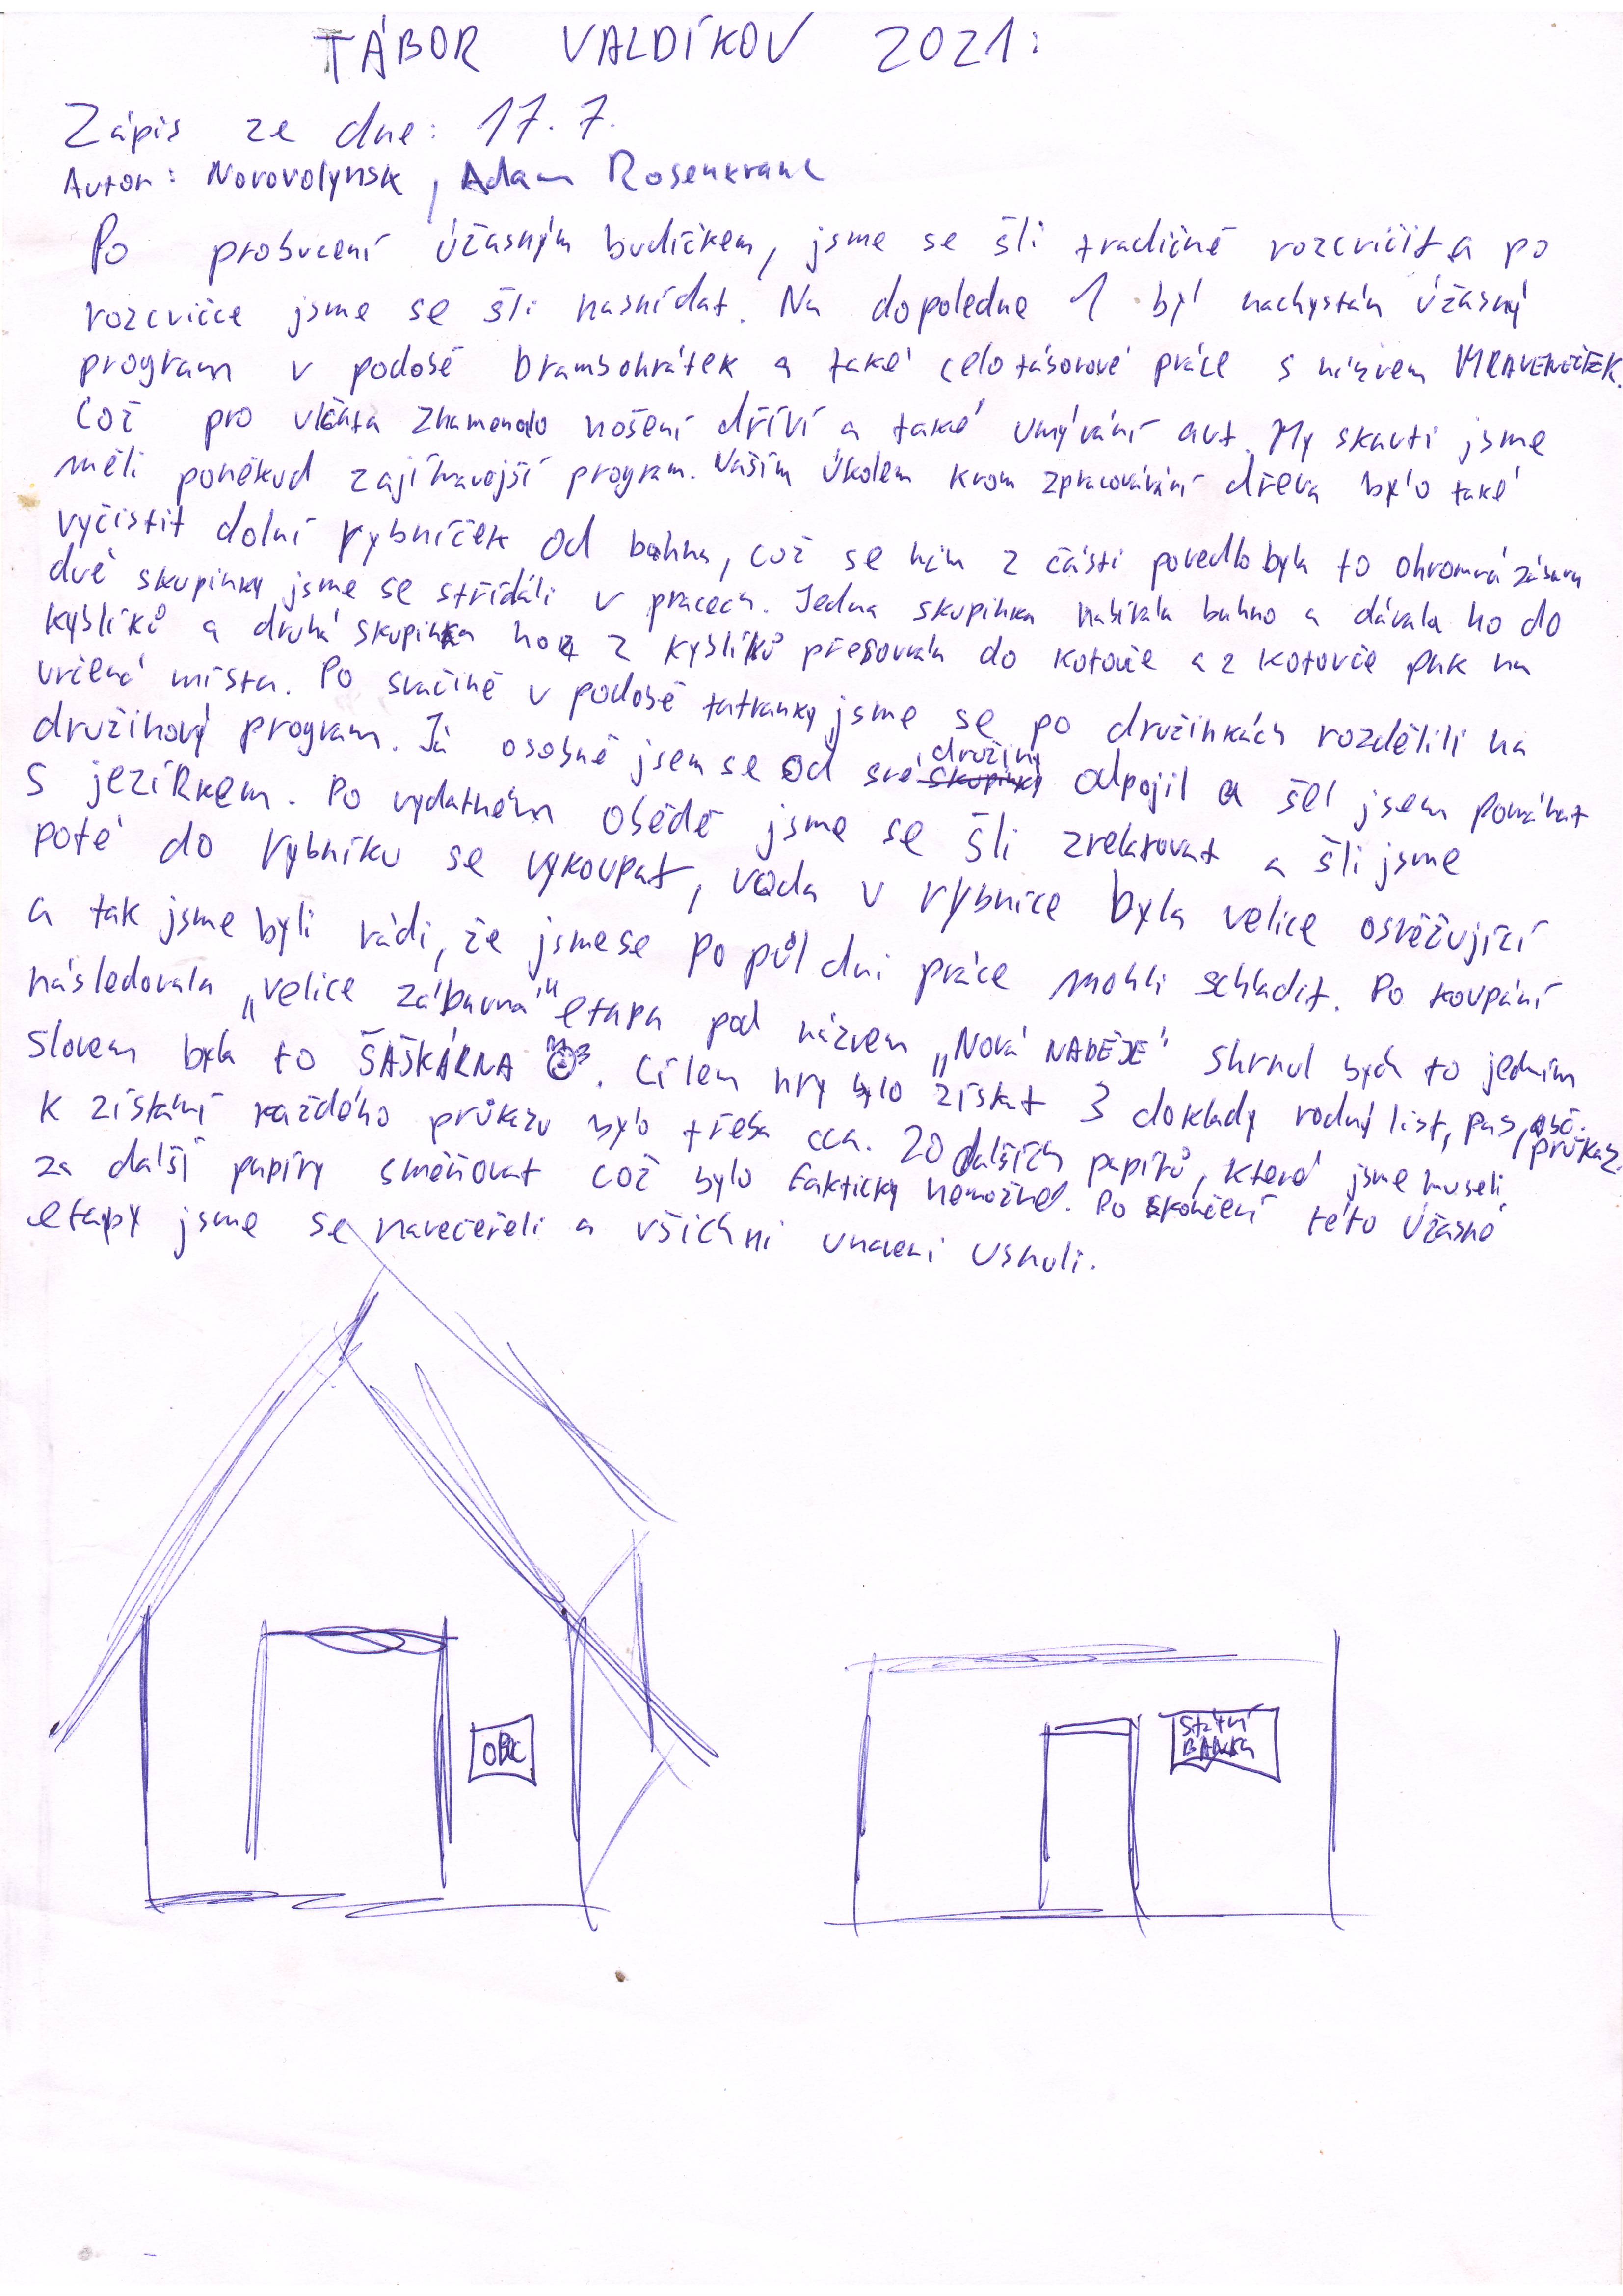 TÁBOR VALDÍKOV 2021:
Zápis ze dne: 17. 7.
Autor: Novovolynsk, Adam Rosenkranc
Po probuzení úžasným budíčkem, jsme se šli tradičně rozcvičit a po
rozcvičce jsme se šli nasnídat. Na dopoledne 1 byl nachystán úžasný
program v podobě brambohrátek a také celotáborové práce s názvem MRAVENEČEK.
Což pro vlčata znamenalo nošení dříví a také umývání aut. My skauti jsme
měli poněkud zajímavější program. Naším úkolem krom zpracovávání dřeva bylo také
vyčistit dolní rybníček od bahna, což se nám z části povedlo byla to ohromná zábava
dvě skupinky jsme se střídali v pracech. Jedna skupinka nabírala bahno a dávala ho do
kyblíků a druhá skupinka ho z kyblíků přesouvala do kotouče a z kotouče pak na
určená místa. Po svačině v podobě tatranky jsme se po družinkách rozdělili na
družinový program. Já osobně jsem se od své skupinky družiny odpojil a šel jsem pomáhat
s jezírkem. Po vydatném obědě jsme se šli zrelaxovat a šli jsme
poté do rybníku se vykoupat, voda v rybníce byla velice osvěžující
a tak jsme byli rádi, že jsme se po půl dni práce mohli schladit. Po koupání
následovala „velice zábavná" etapa pod názvem „NOVÁ NADĚJE" shrnul bych to jedním
slovem byla to ŠAŠKÁRNA. Cílem hry bylo získat 3 doklady rodný list, pas, obč. průkaz.
K získání každého průkazu bylo třeba cca. 20 dalších papírů, které jsme museli
za další papíry směňovat což bylo fakticky nemožné. Po skončení této úžasné
etapy jsme se navečeřeli a všichni unaveni usnuli.
Státní
BANKA